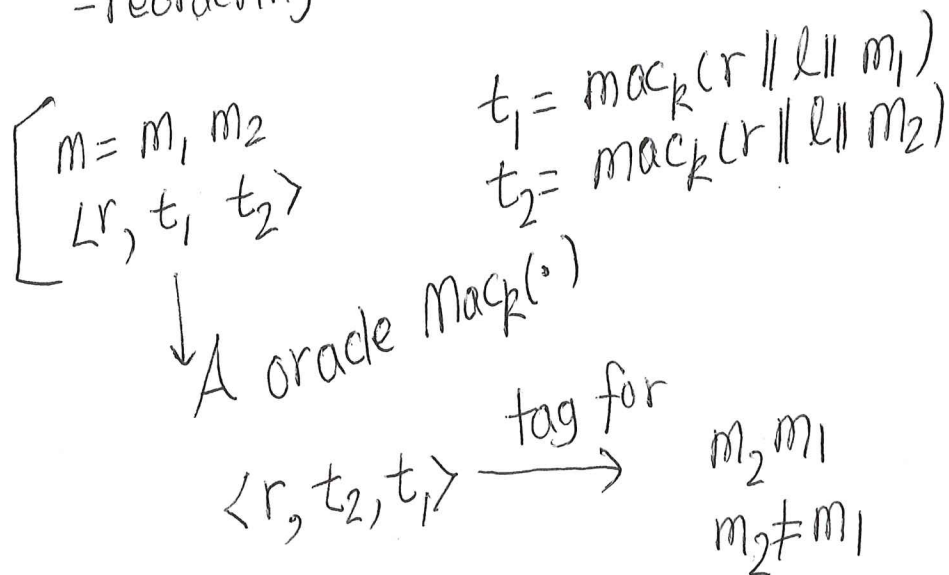 - reordering
m = m₁ m₂
<r, t₁ t₂>
t₁ = mac_k(r || l || m₁)
t₂ = mac_k(r || l || m₂)
A oracle Mac_k(·)
<r, t₂, t₁> tag for → m₂ m₁
m₂ ≠ m₁